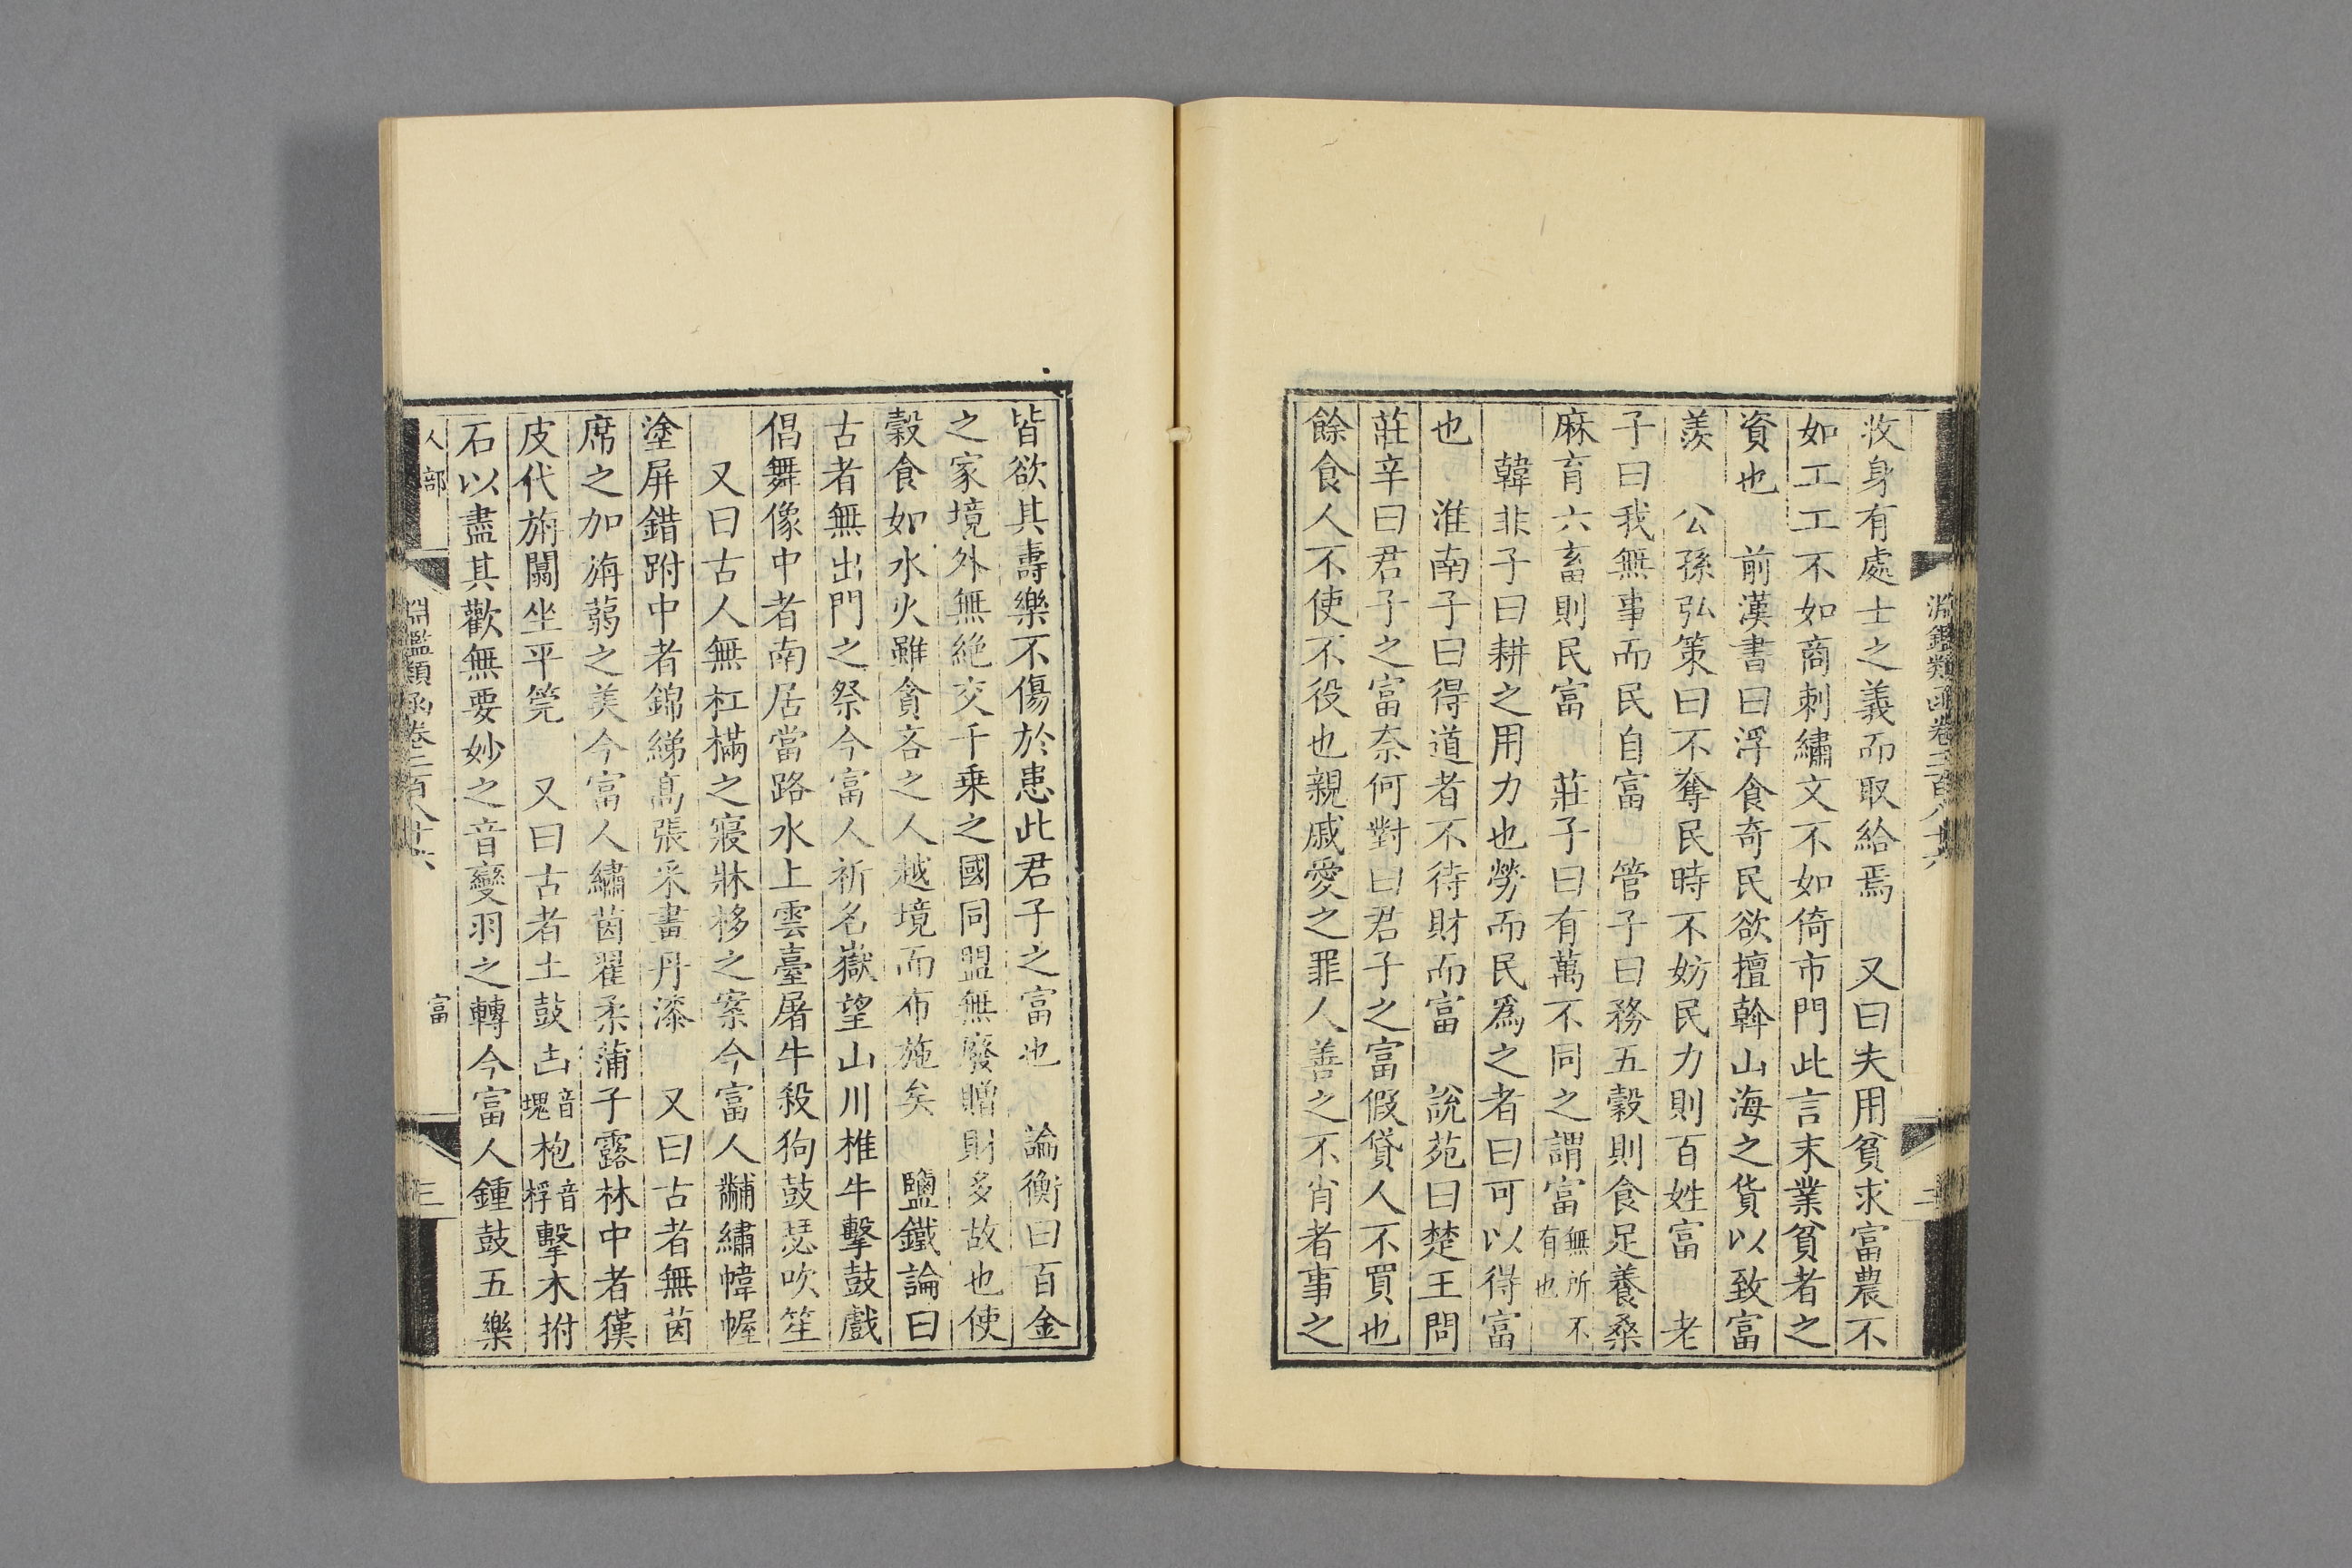 淵鑑類函卷三百八十六
二
牧身有處士之義而取給焉　又曰夫用貧求富農不
如工工不如商刺繡文不如倚市門此言末業貧者之
資也　前漢書曰浮食奇民欲擅斡山海之貨以致富
羨　公孫弘策曰不奪民時不妨民力則百姓富　老
子曰我無事而民自富　管子曰務五穀則食足養桑
麻育六畜則民富　莊子曰有萬不同之謂富無所不有也
韓非子曰耕之用力也勞而民爲之者曰可以得富
也　淮南子曰得道者不待財而富　說苑曰楚王問
莊辛曰君子之富奈何對曰君子之富假貸人不買也
餘食人不使不役也親戚愛之罪人善之不肖者事之
皆欲其壽樂不傷於患此君子之富也　論衡曰百金
之家境外無絶交千乗之國同盟無廢贈財多故也使
穀食如水火雖貪吝之人越境而布施矣　鹽鐵論曰
古者無出門之祭今富人祈名嶽望山川椎牛擊鼓戲
倡舞像中者南居當路水上雲臺屠牛殺狗鼓瑟吹笙
又曰古人無杠樠之寢牀栘之案今富人黼繡幃幄
塗屏錯跗中者錦綈髙張采畫丹漆　又曰古者無茵
席之加旃蒻之美今富人繡茵翟柔蒲子露林中者獏
皮代旃闒坐平筦　又曰古者土鼓𠙽音塊枹音桴擊木拊
石以盡其歡無要妙之音變羽之轉今富人鍾鼓五樂
人部
淵鑑類函卷三百八十六
富
三